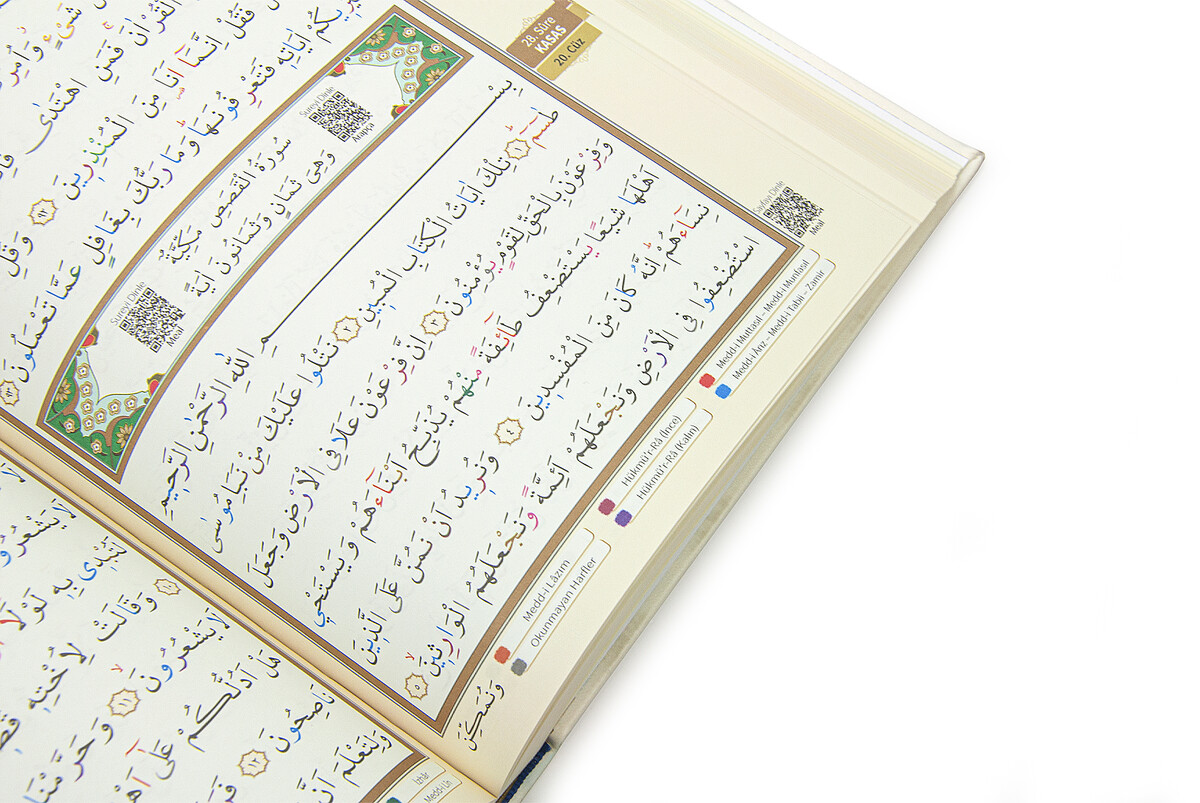 28. Sûre
KASAS
20. Cüz
بِكُمْ اٰيَاتِهٖ فَتَعْرِفُونَهَاۜ وَمَا رَبُّكَ بِغَافِلٍ عَمَّا تَعْمَلُونَ ﴿٩٣﴾
الْقُرْاٰنَ فَمَنِ اهْتَدٰى
فَقُلْ اِنَّمَٓا اَنَا مِنَ الْمُنْذِرٖينَ ﴿٩٢﴾ وَقُلِ
Sureyi Dinle
Arapça
سُورَةُ الْقَصَصِ مَكِّيَّةٌ
وَهِيَ ثَمَانٍ وَثَمَانُونَ اٰيَةً
Sureyi Dinle
Meal
بِسْمِ اللّٰهِ الرَّحْمٰنِ الرَّحٖيمِ
طٰسٓمٓ ﴿١﴾ تِلْكَ اٰيَاتُ الْكِتَابِ الْمُبٖينِ ﴿٢﴾ نَتْلُوا عَلَيْكَ مِنْ نَبَاِ مُوسٰى
وَفِرْعَوْنَ بِالْحَقِّ لِقَوْمٍ يُؤْمِنُونَ ﴿٣﴾ اِنَّ فِرْعَوْنَ عَلَا فِي الْاَرْضِ وَجَعَلَ
اَهْلَهَا شِيَعًا يَسْتَضْعِفُ طَٓائِفَةً مِنْهُمْ يُذَبِّحُ اَبْنَٓاءَهُمْ وَيَسْتَحْيٖ
نِسَٓاءَهُمْۜ اِنَّهُ كَانَ مِنَ الْمُفْسِدٖينَ ﴿٤﴾ وَنُرٖيدُ اَنْ نَمُنَّ عَلَى الَّذٖينَ
اسْتُضْعِفُوا فِي الْاَرْضِ وَنَجْعَلَهُمْ اَئِمَّةً وَنَجْعَلَهُمُ الْوَارِثٖينَۙ ﴿٥﴾
وَنُمَكِّنَ
Sayfayı Dinle
Meal
Medd-i Muttasıl – Medd-i Munfasıl
Medd-i Arız – Medd-i Tabii – Zamir
Hükmü'r-Râ (İnce)
Hükmü'r-Râ (Kalın)
Medd-i Lâzım
Okunmayan Harfler
لَا يَشْعُرُو
لَتُبْدٖي بِهٖ لَوْلَٓا
﴿١٠﴾ وَقَالَتْ لِاُخْتِهٖ
لَا يَشْعُرُونَۙ ﴿١١﴾ وَحَرَّمْنَا
هَلْ اَدُلُّكُمْ عَلٰٓى اَهْ
نَاصِحُونَ ﴿١٢﴾
وَلِتَعْلَمَ اَنَّ
İzhâr
Medd-i Lîn